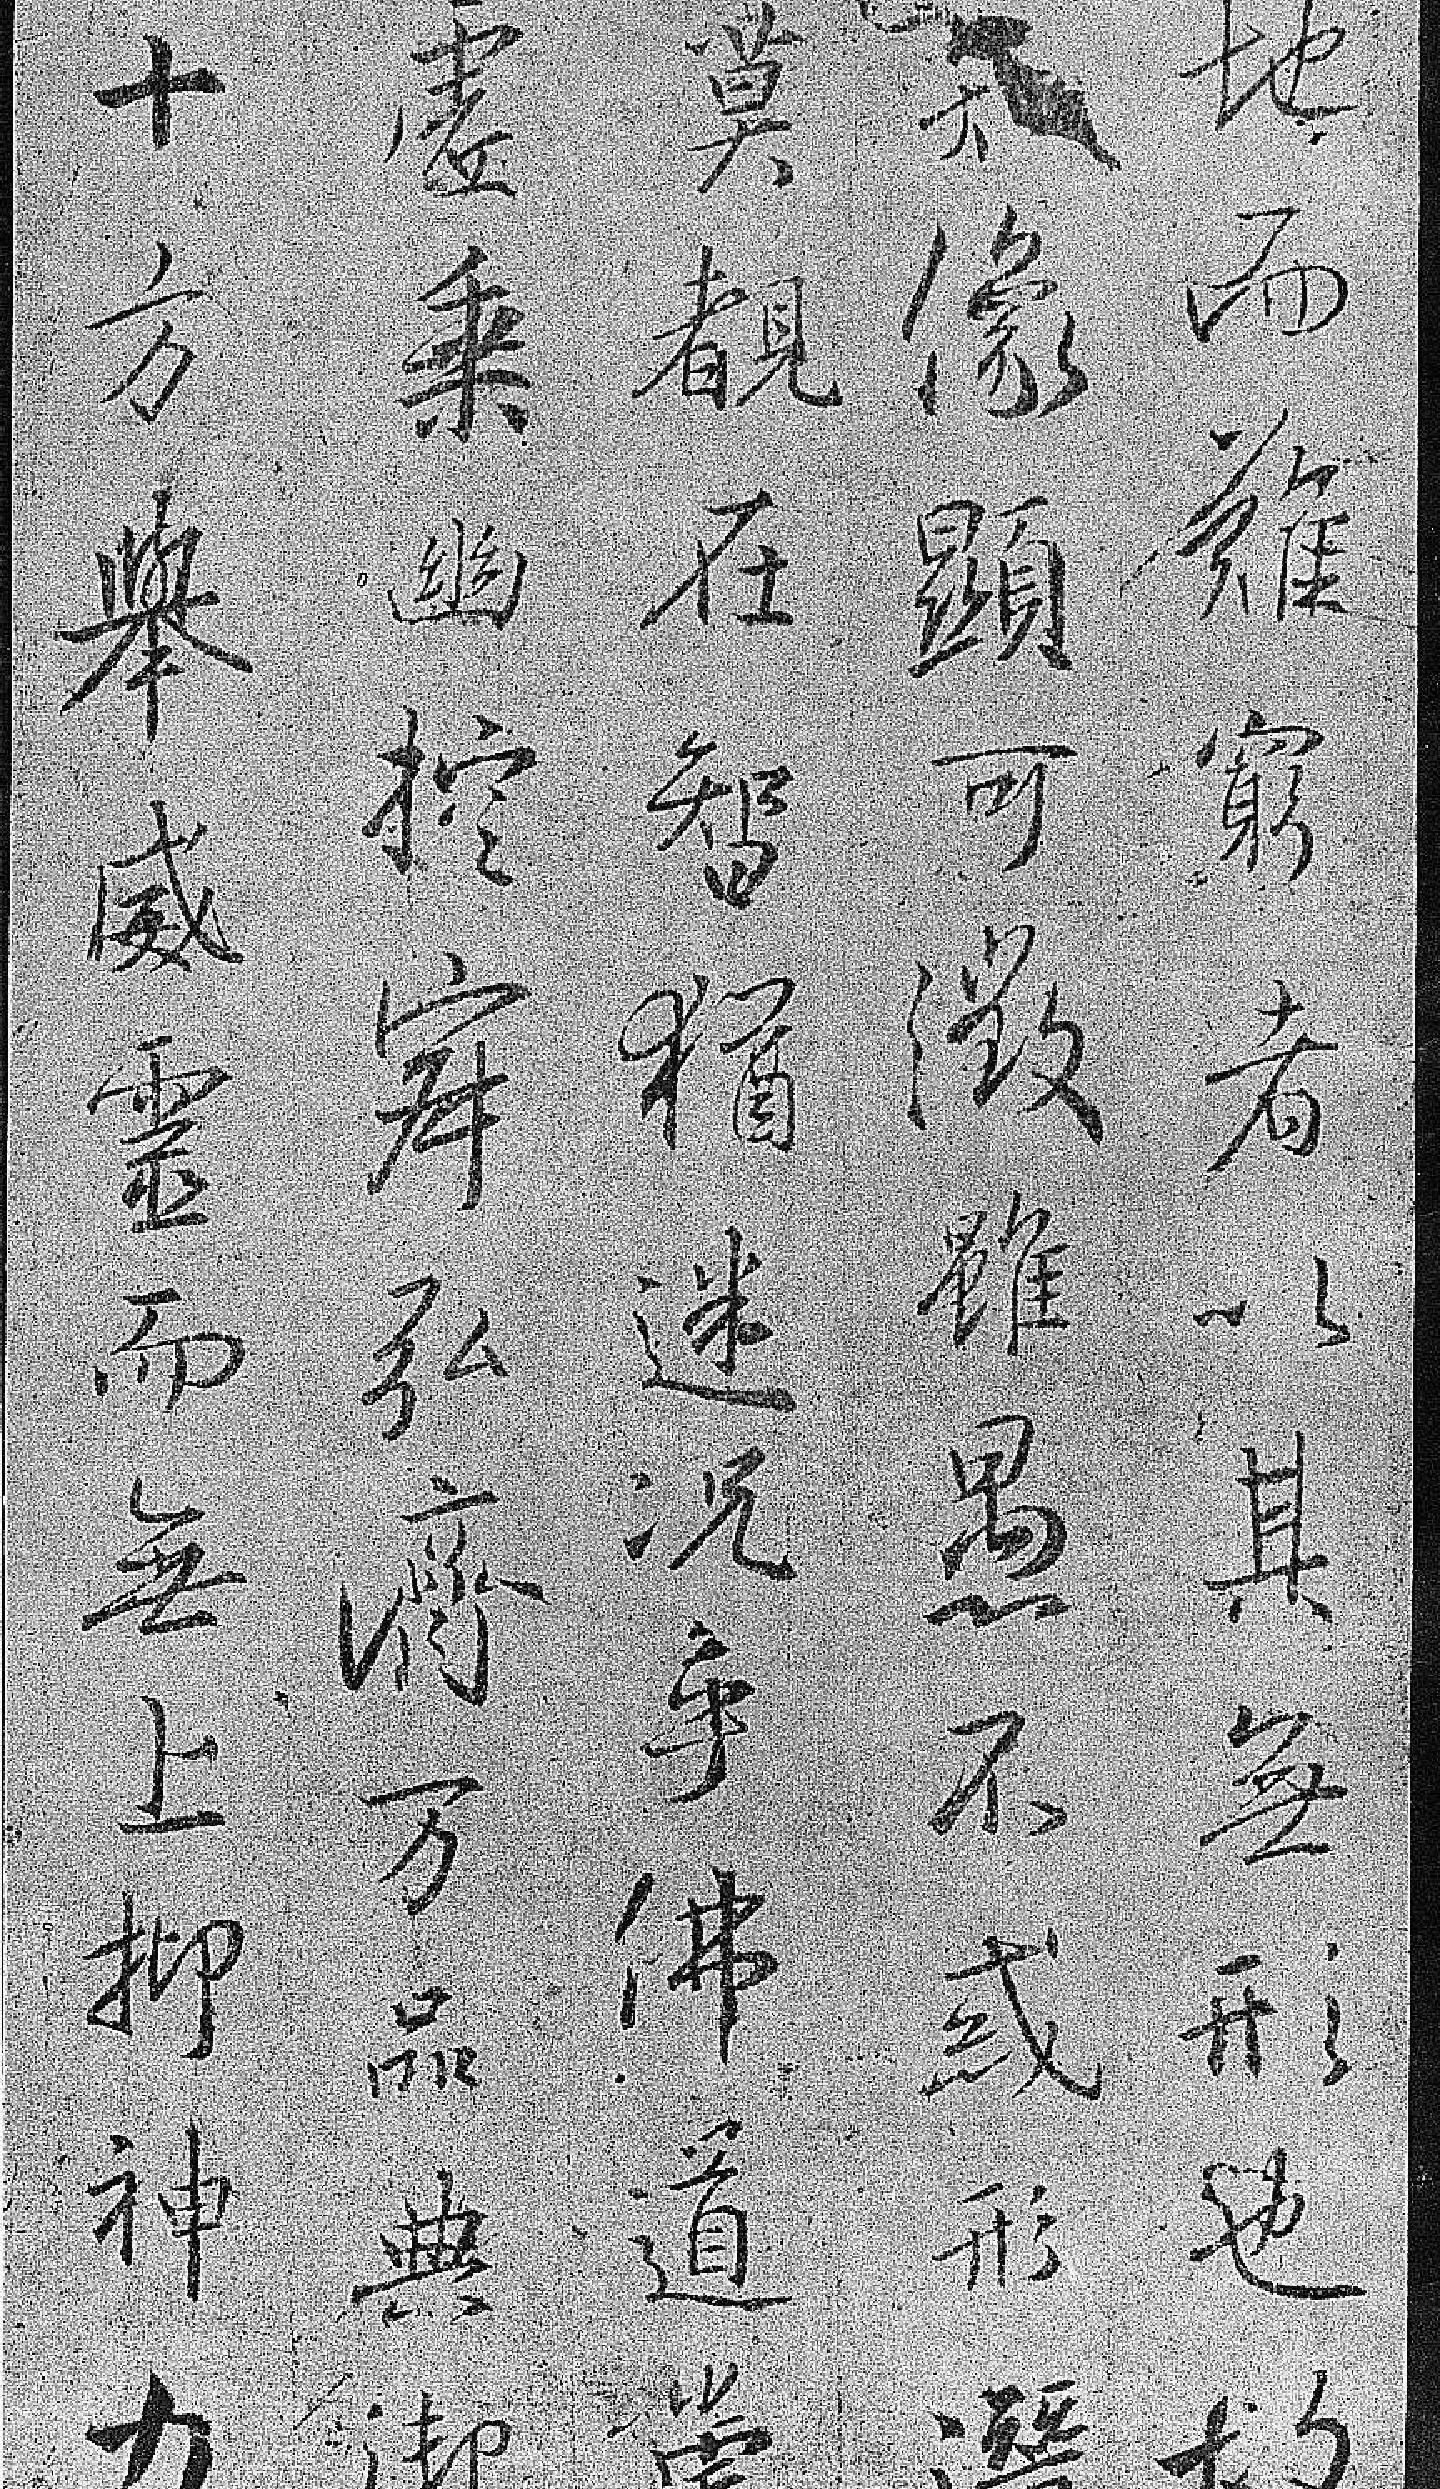 地而難窮者以其無形也故
知像顯可徵雖愚不惑形潛
莫覩在智猶迷況乎佛道崇
虛乘幽控寂弘濟万品典御
十方舉威靈而無上抑神力